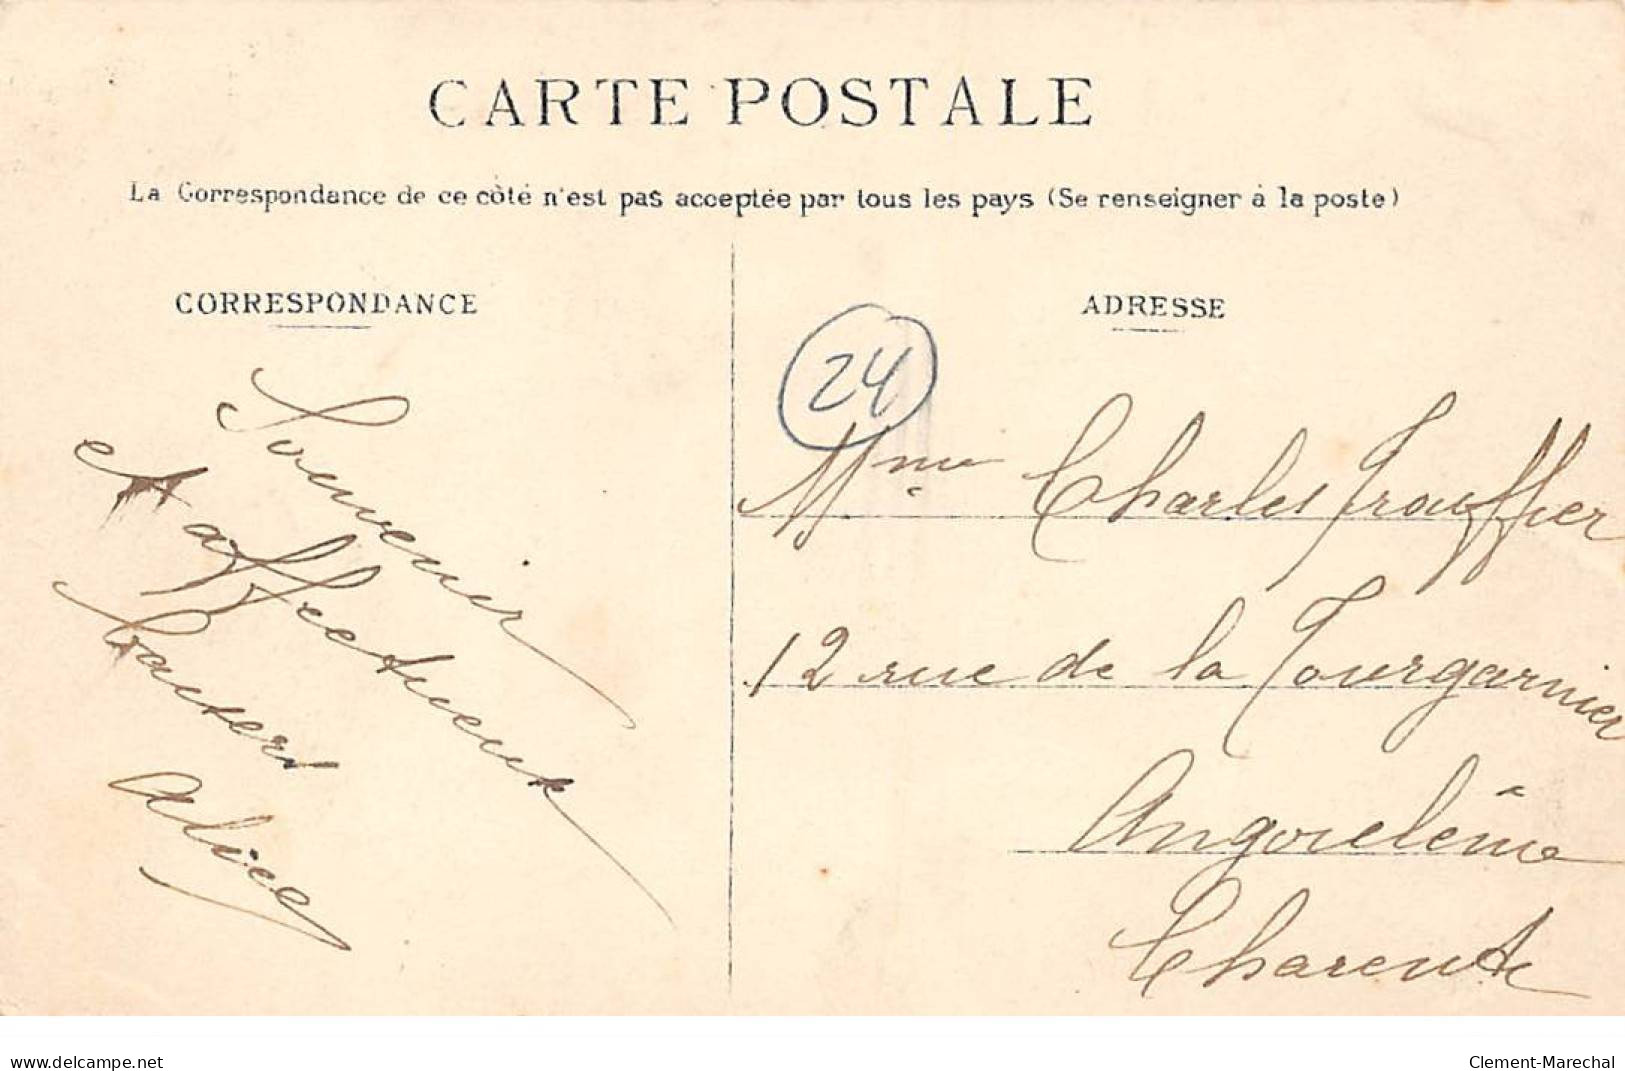 CARTE POSTALE
La Correspondance de ce côté n'est pas acceptée par tous les pays (Se renseigner à la poste)
CORRESPONDANCE
Souvenir
et affectueux
baisers
Alice
ADRESSE
24
Mme Charles Trouffier
12 rue de la Tourgarnier
Angoulême
Charente
delcampe.net
Clement-Marechal